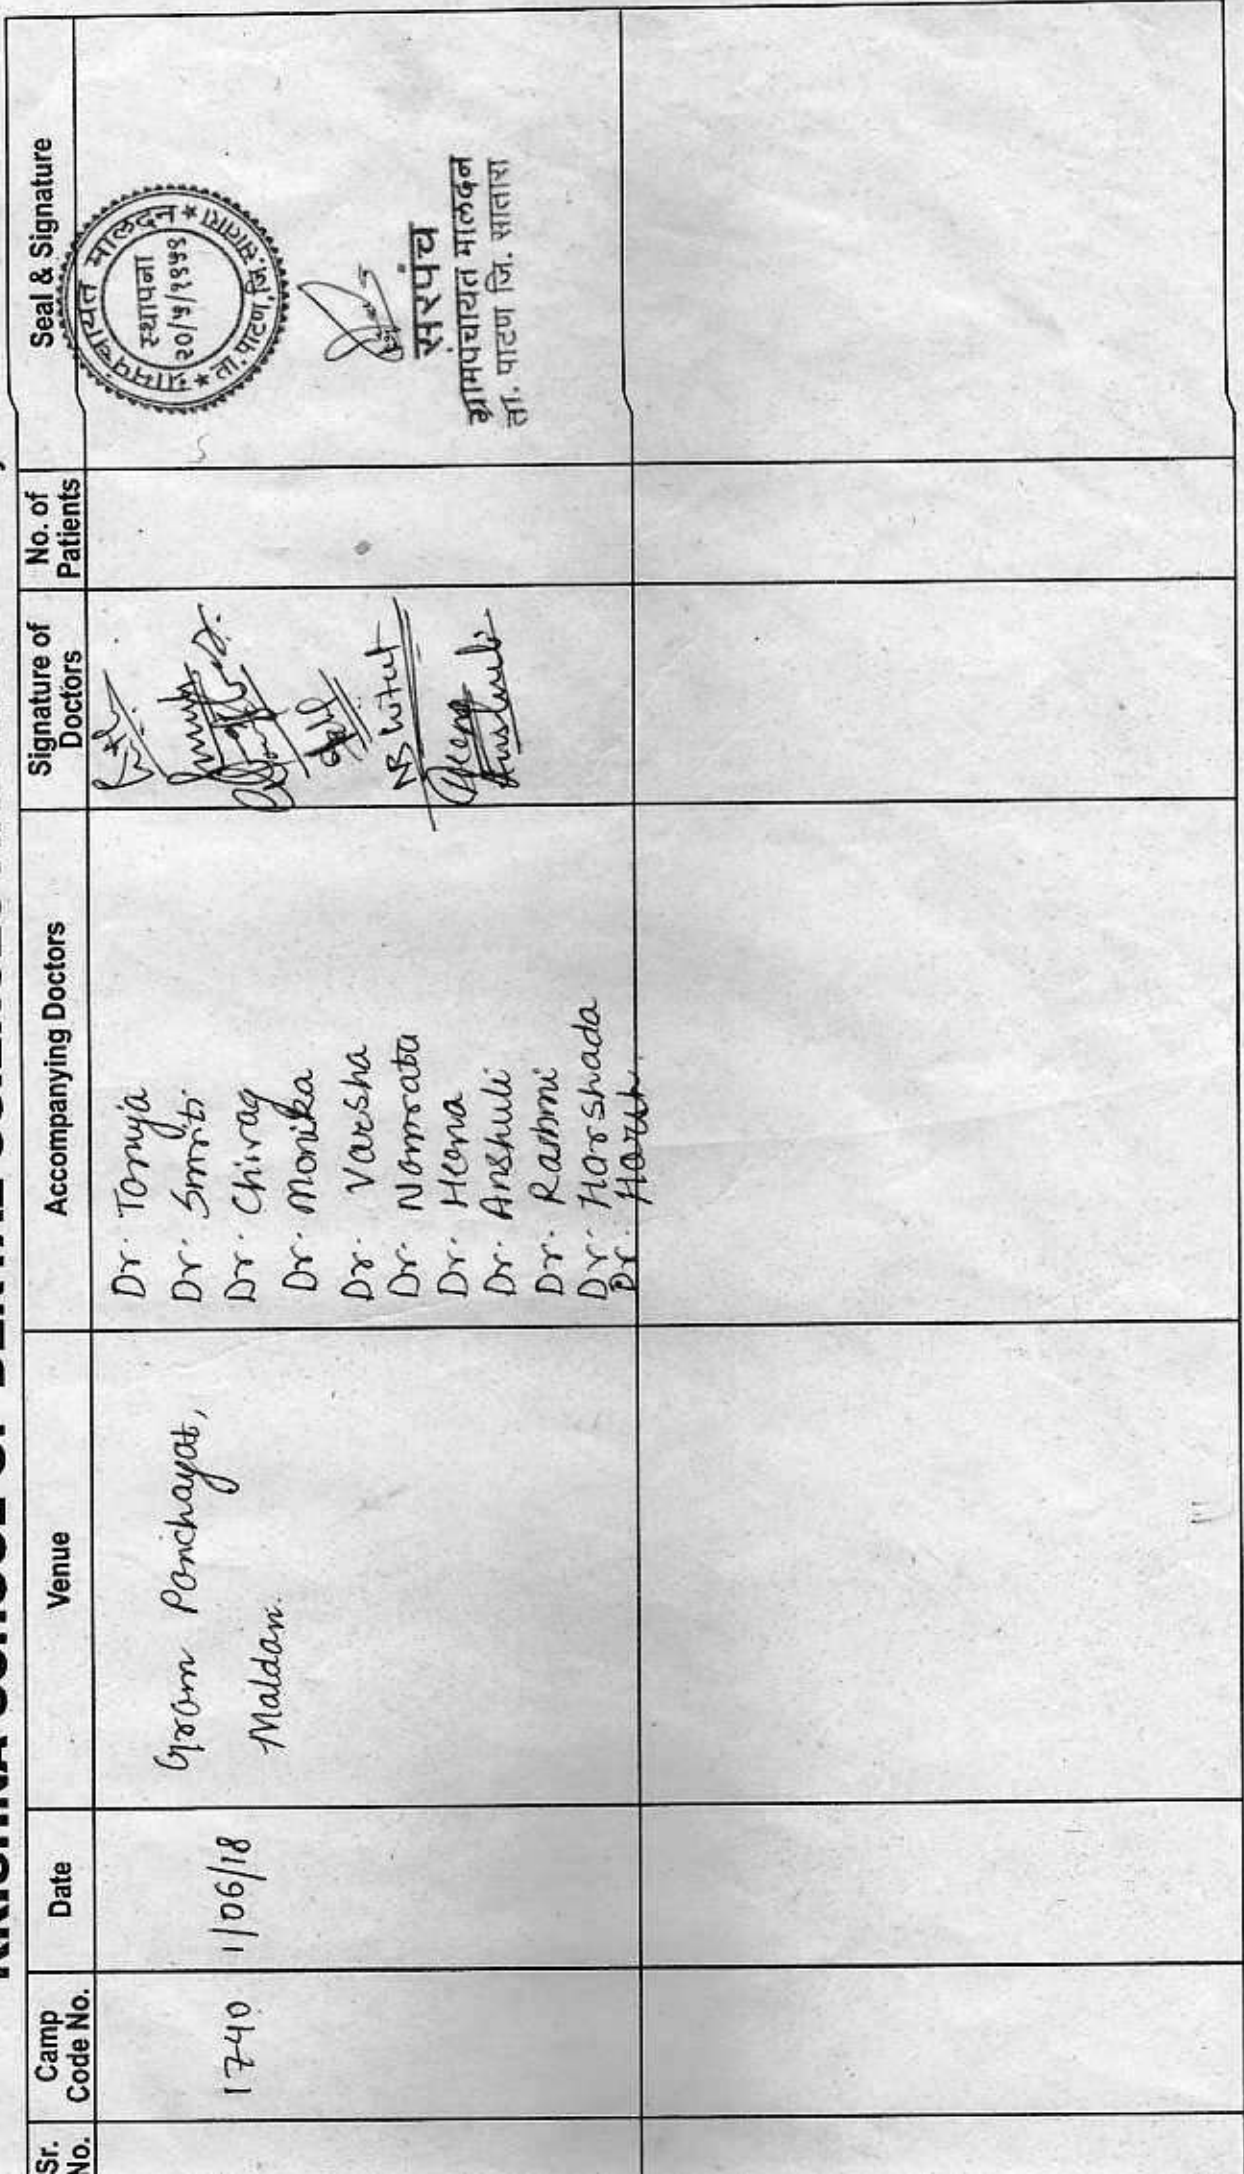 Sr. No.
Camp Code No.
Date
Venue
Accompanying Doctors
Signature of Doctors
No. of Patients
Seal & Signature
1740
1/06/18
Gram Panchayat,
Maldan.
Dr. Tanuja
Dr. Smriti
Dr. Chirag
Dr. Monika
Dr. Varsha
Dr. Namrata
Dr. Heena
Dr. Anshuli
Dr. Rashmi
Dr. Harshada
Dr.
Heena
Anshuli
ग्रामपंचायत मालदन
स्थापना
२०/५/१९५५
ता. पाटण जि. सातारा
सरपंच
ग्रामपंचायत मालदन
ता. पाटण जि. सातारा